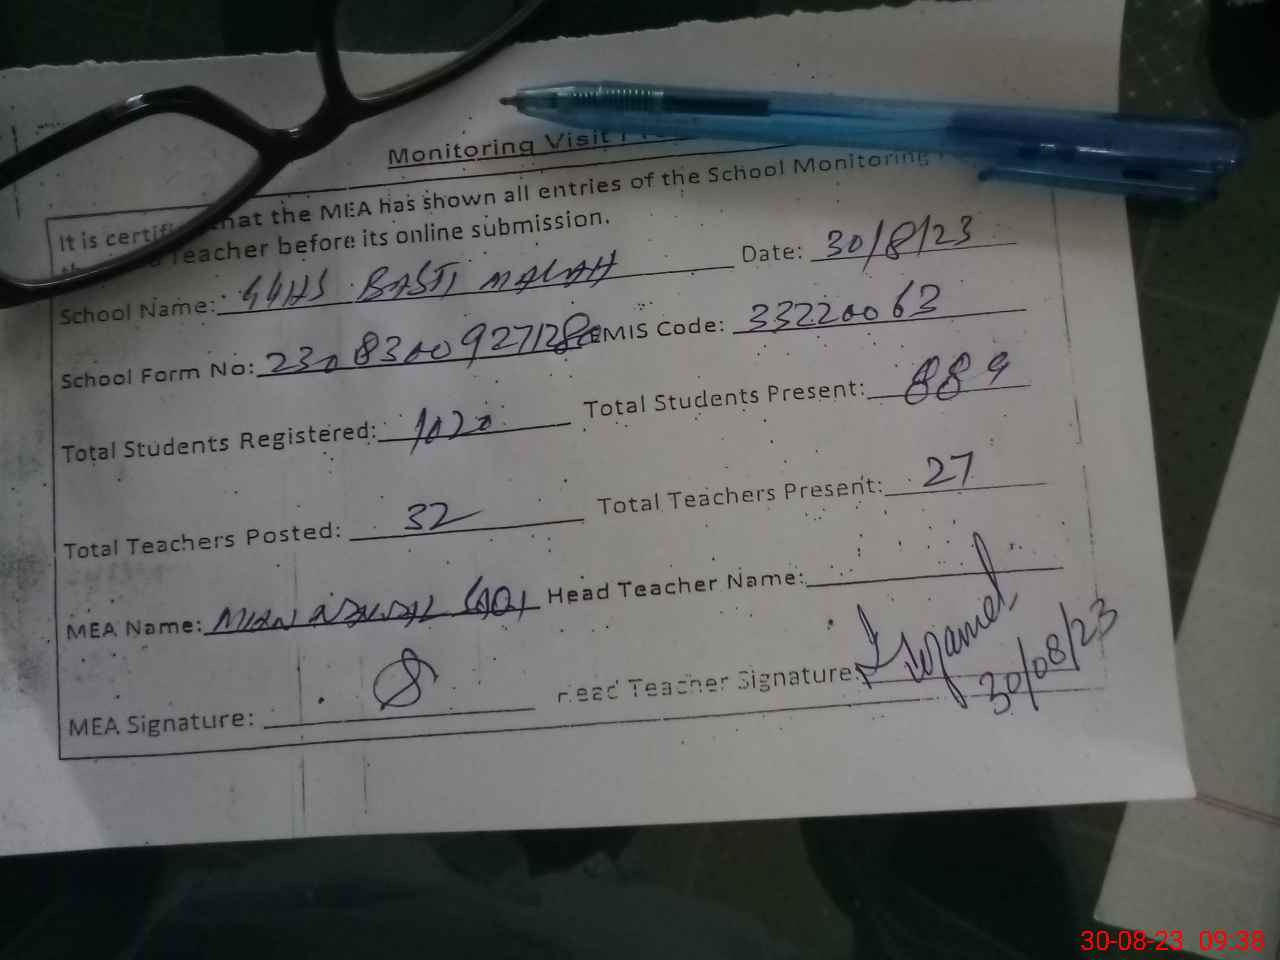 Monitoring Visit
It is certif that the MEA has shown all entries of the School Monitoring
Teacher before its online submission.
School Name: GGHS BASTI MALAH Date: 30/8/23
School Form No: EMIS Code: 33220063
Total Students Registered: 1020 Total Students Present: 889
Total Teachers Posted: 32 Total Teachers Present: 27
MEA Name: MIAN Head Teacher Name:
MEA Signature: Head Teacher Signature:
30/08/23
30-08-23 09:38